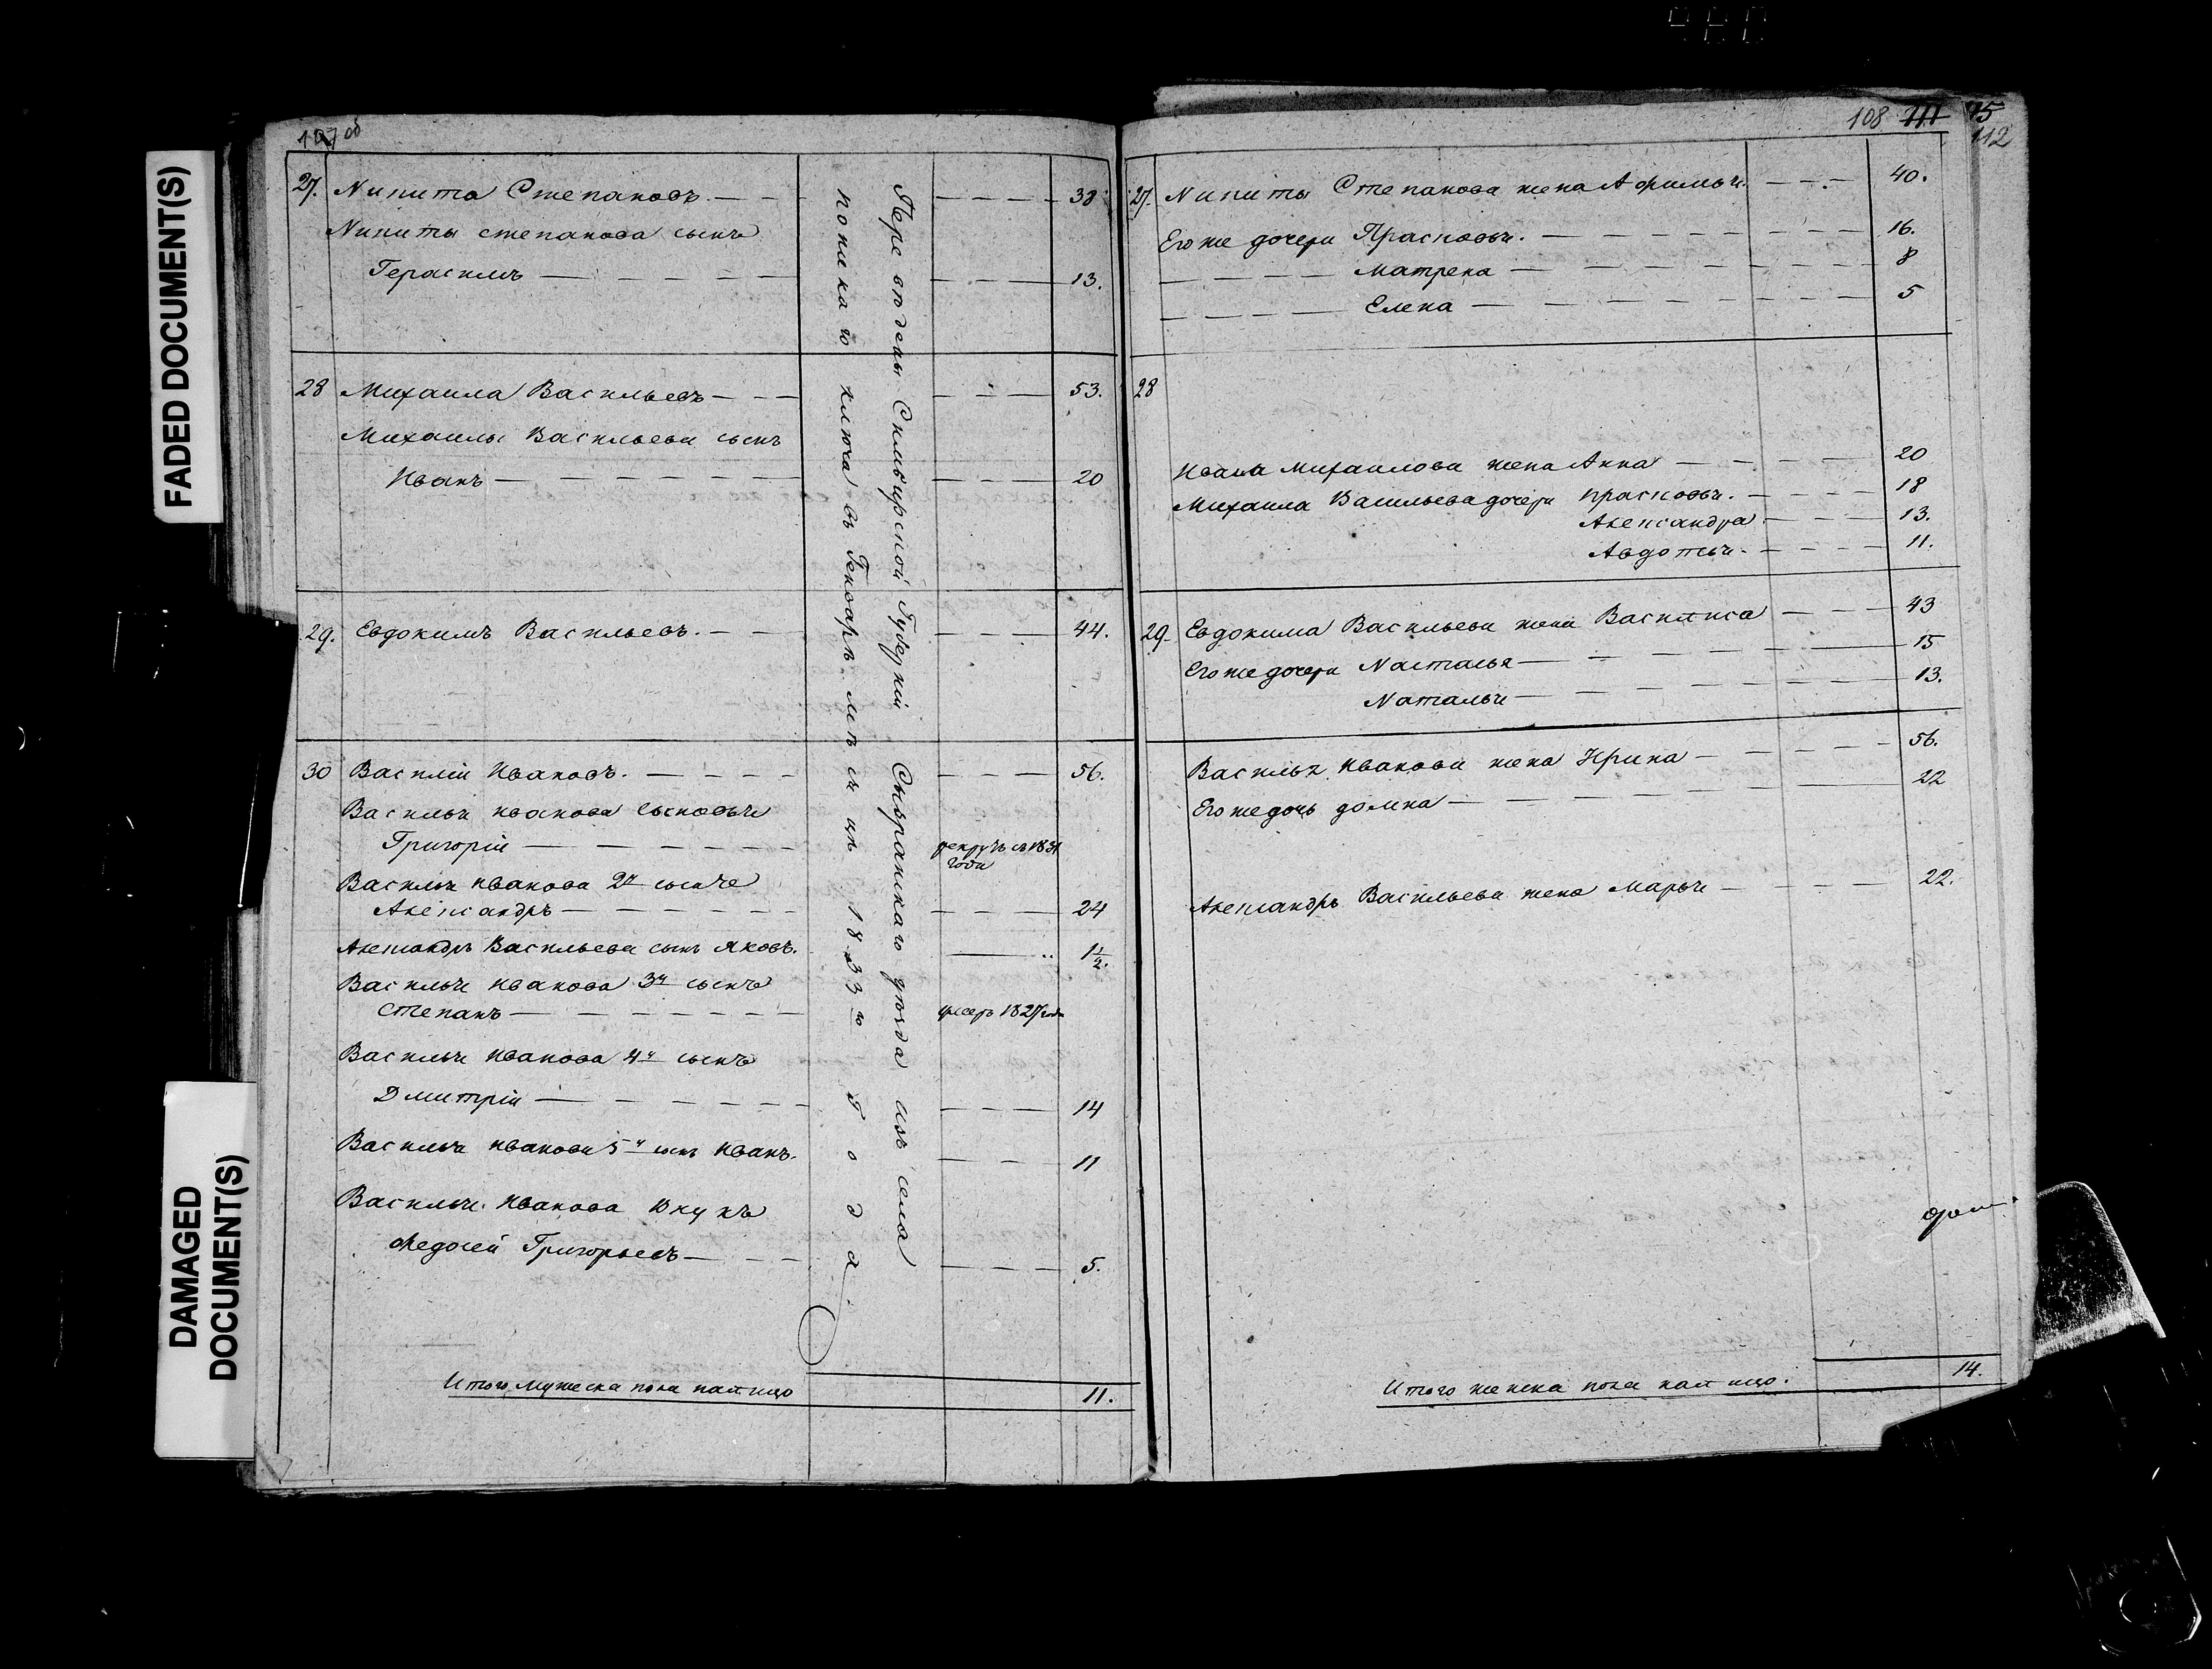 FADED DOCUMENT(S)
DAMAGED DOCUMENT(S)
107 об
27. Никита Степановъ. 38
Никиты степанова сынъ
Герасимъ 13.
28 Михаила Васильевъ 53.
Михаилы Васильева сынъ
Иванъ 20
29. Евдокимъ Васильевъ. 44.
30 Василій Ивановъ. 56.
Василья иванова сыновья
Григорій рекрутъ съ 1831 года
Василья иванова 2й сынъ
Александръ 24
Александръ Васильева сынъ Яковъ. 1 1/2.
Василья иванова 3й сынъ
степанъ умеръ 1827 года
Василья иванова 4й сынъ
Дмитрій 14
Василья иванова 5й сынъ иванъ. 11
Василья иванова внукъ
Федосей Григорьевъ 5.
Переведены Симбирской Губерніи Сызранскаго уезда изъ села
ключа въ Генваре месяце 1833го года.
Итого мужеска пола налицо 11.
108 111 75
112
27. Никиты Степанова жена Афимья. 40.
Его же дочери Прасковья. 16.
Матрена 8
Елена 5
28
Ивана Михаилова жена Анна 20
Михаила Васильева дочери прасковья. 18
Александра 13.
Авдотья. 11.
29. Евдокима Васильева жена Василиса 43
Его же дочери Насталья 15
Наталья 13.
Василья иванова жена Ирина 56.
Его же дочь домна 22
Александръ Васильева жена Марья 22.
Итого женска пола налицо. 14.